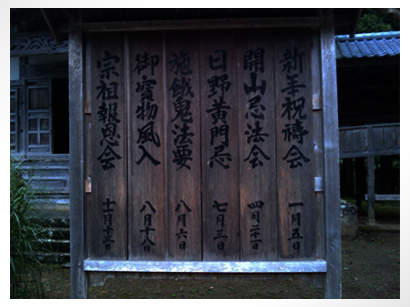 新年祝禱会 一月五日
開山忌法会 四月二十一日
日野黄門忌 七月三日
施餓鬼法要 八月六日
御霊物風入 八月十八日
宗祖報恩会 十一月十三日